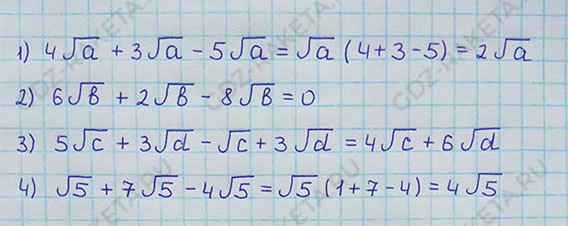 1) 4√a + 3√a - 5√a = √a (4+3-5) = 2√a
2) 6√b + 2√b - 8√b = 0
3) 5√c + 3√d - √c + 3√d = 4√c + 6√d
4) √5 + 7√5 - 4√5 = √5 (1+7-4) = 4√5